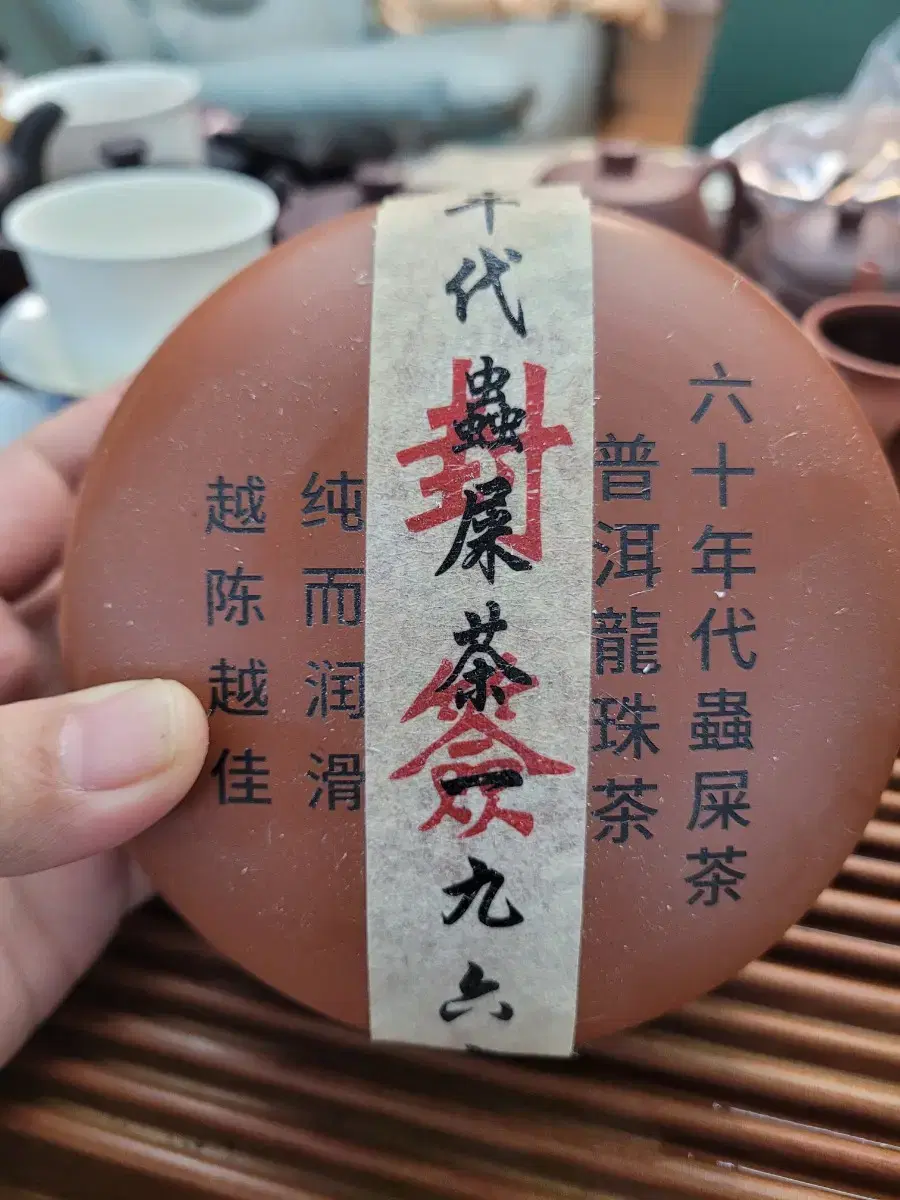 六十年代蟲屎茶
普洱龍珠茶
年代蟲屎茶一九六
封簽
纯而润滑
越陈越佳